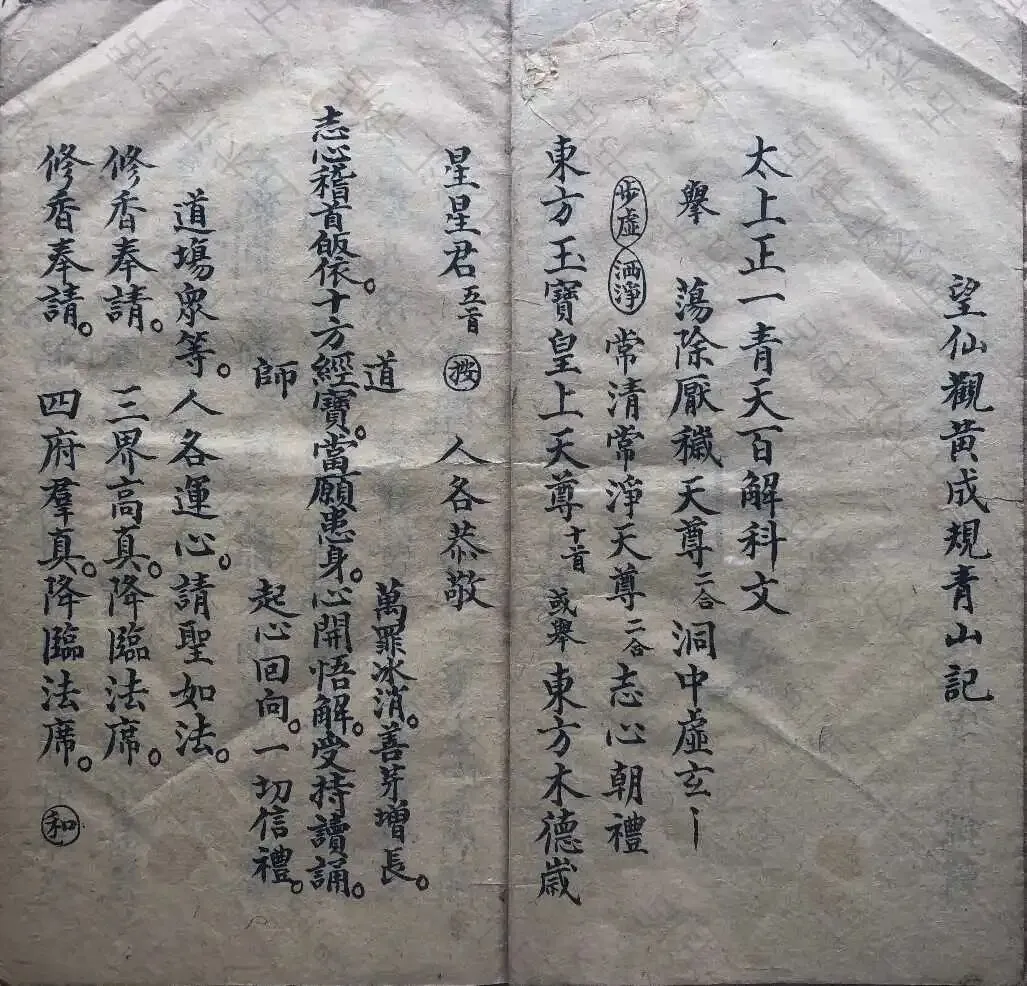 望仙觀黃成規青山記
太上正一青天百解科文
舉 蕩除厭穢天尊二合 洞中虛玄
步虛 洒淨 常清常淨天尊二合 志心朝禮
東方玉寶皇上天尊十首 或舉 東方木德歲
星星君五首 按 人各恭敬
道 萬罪冰消。善芽增長。
志心稽首皈依。十方經寶。當願患身。心開悟解。受持讀誦。
師 起心回向。一切信禮。
道場衆等。人各運心。請聖如法。
修香奉請。 三界高真。降臨法席。
修香奉請。 四府羣真。降臨法席。 和